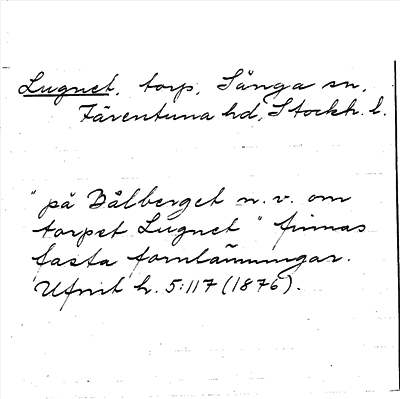 Lugnet, torp, Sånga sn,
Färentuna hd, Stockh. l.
"på Bålberget n.v. om
torpet Lugnet" finnas
fasta fornlämningar.
Ufmt h. 5:117 (1876).